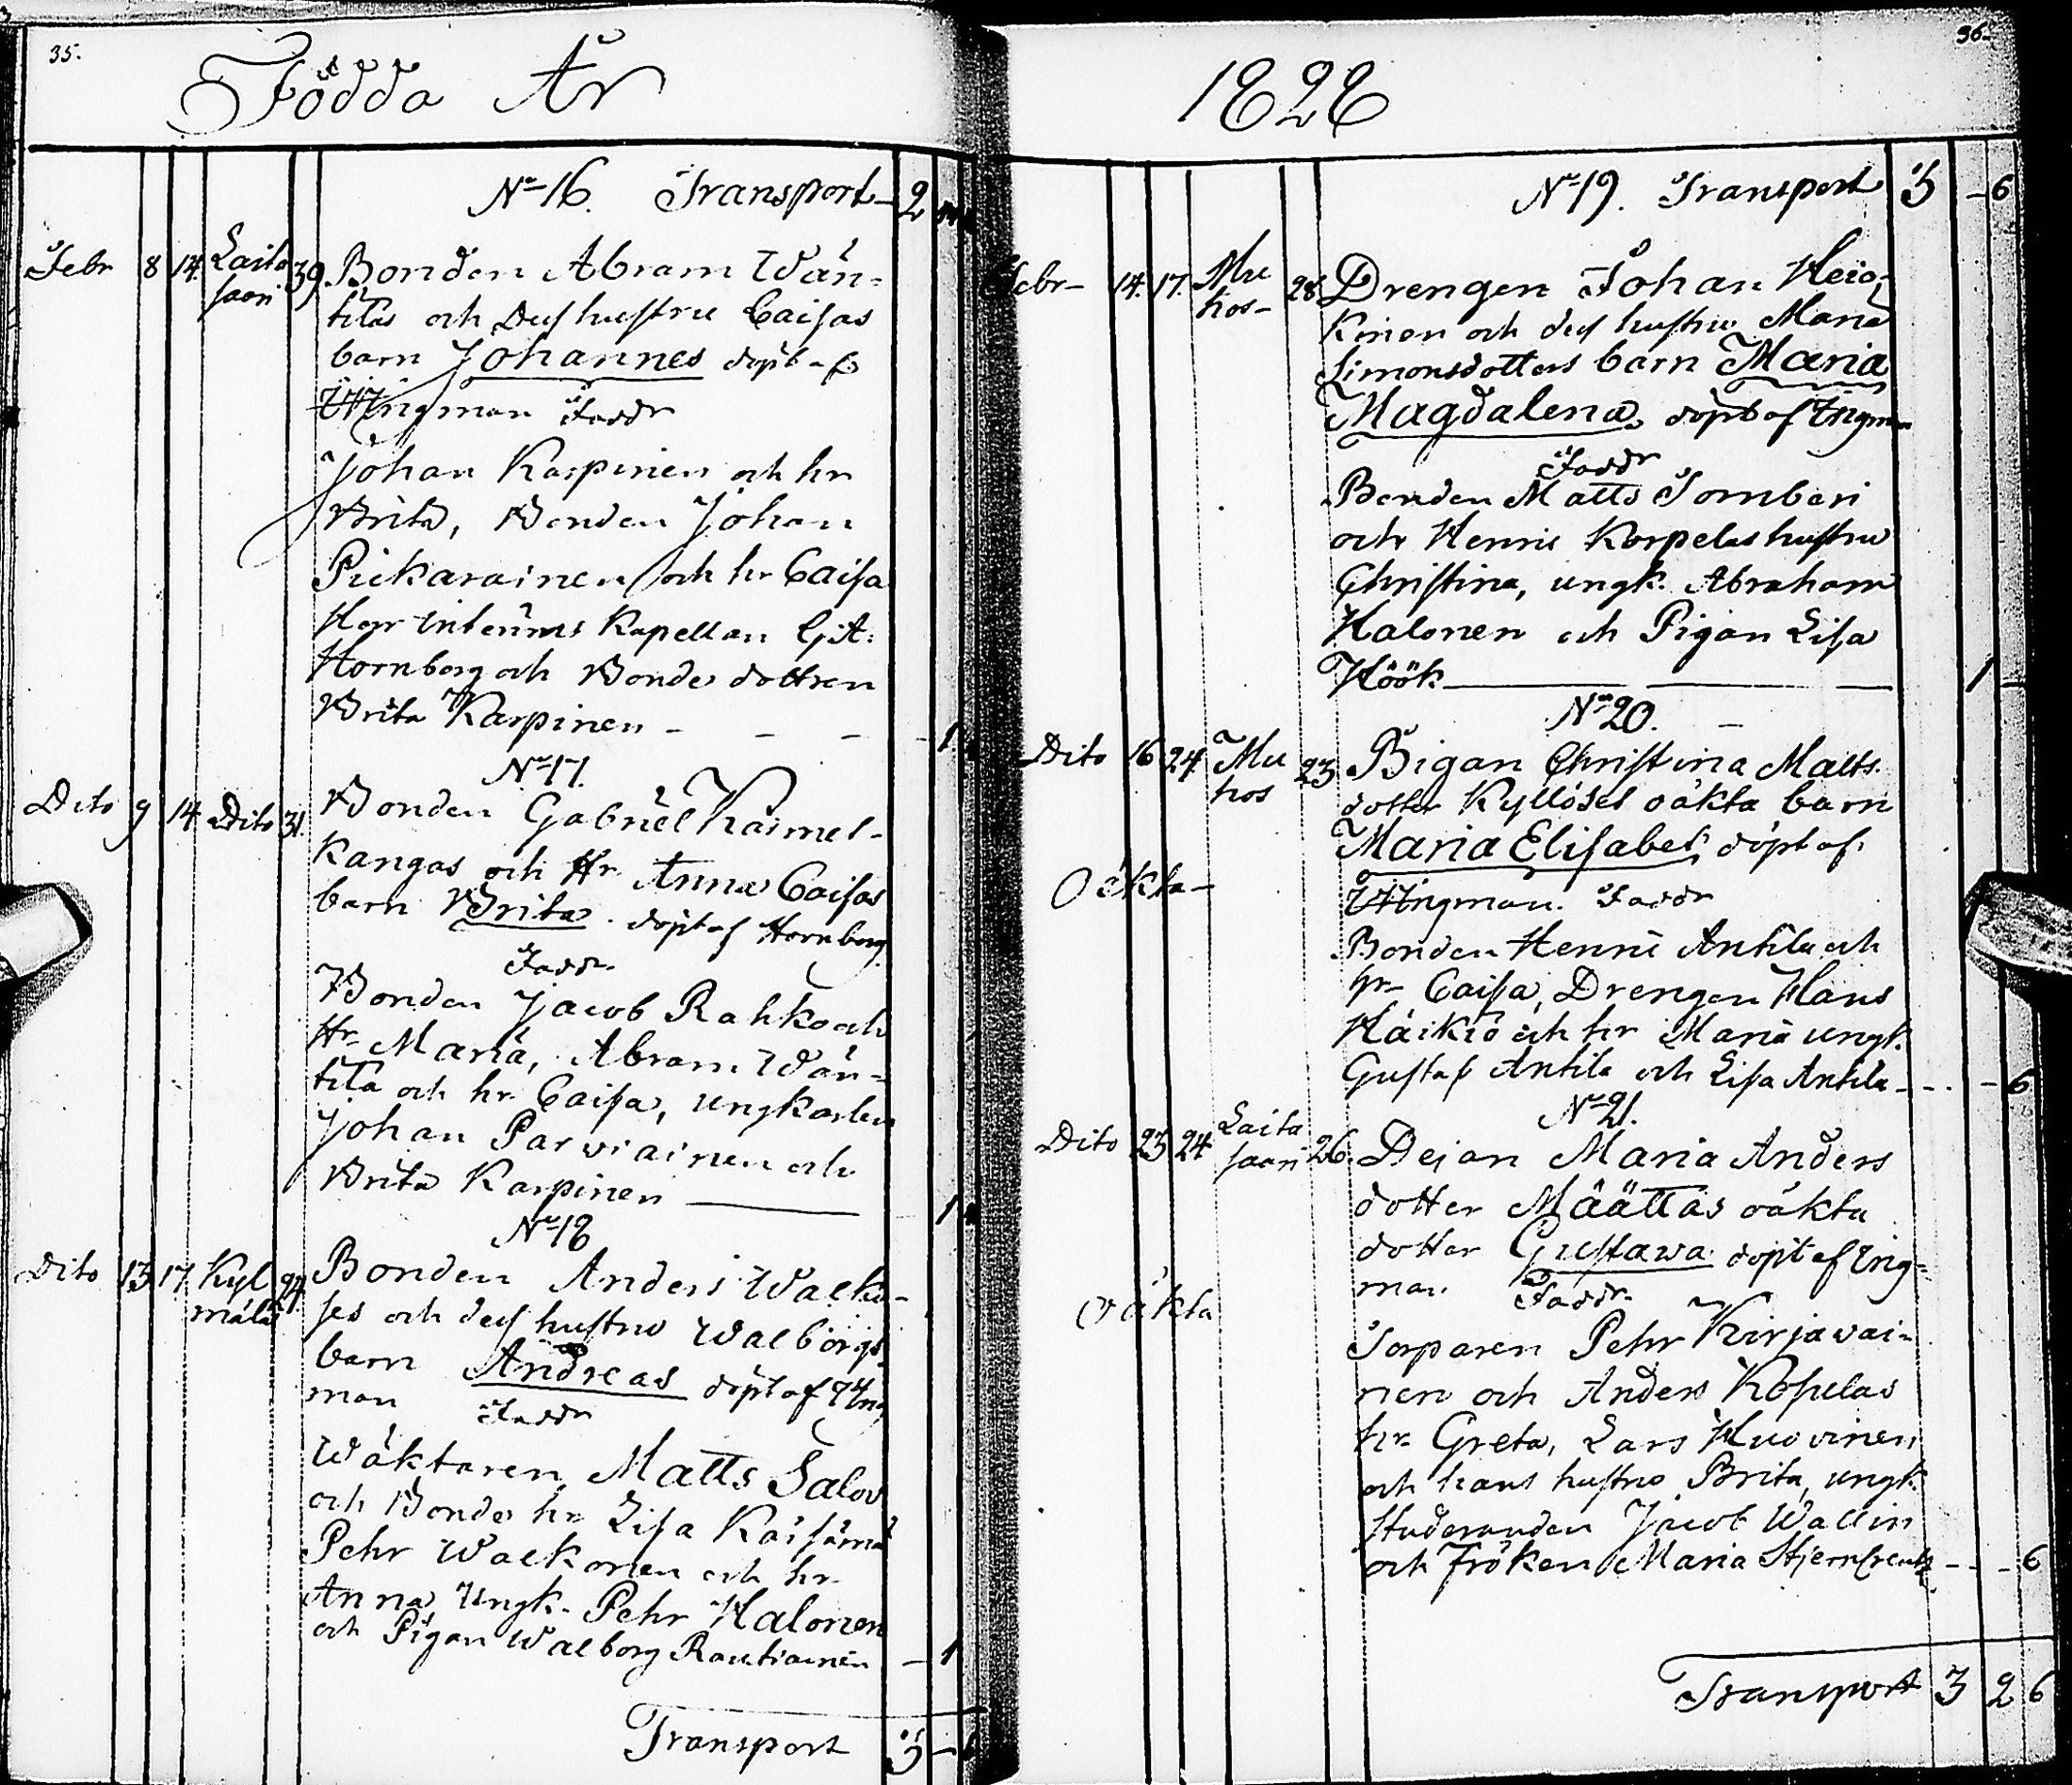 35.
Födda År
No 16. Transport 2
Febr 8 14. Laita 39. Bonden Abram Wän-
saari tilas och Dess hustru Caisas
barn Johannes döpt af
Ungman Faddr
Johan Karpinen och hr
Brita, Bonden Johan
Pickarainen och hr Caisa
Herr interims Kapellan G: A:
Hornborg och Bonde dottren
Brita Karpinen - - - - 1.
No 17.
Dito 9 14 Dito 31. Bonden Gabriel
Kangas och Hr Anna Caisas
barn Brita. döpt af Hornborg
Faddr.
Bonden Jacob Rahko och
Hr Maria, Abram Wän-
tila och hr Caisa, ungkarlen
Johan Parviainen och
Brita Karpinen 1
No 18
Dito 13 17 Kyl Bonden Anders Walko-
mälä ses och dess hustru Walborgs
barn Andreas döpt af Ung
man Faddr
Wäktaren Matts Salo
och Bonde hr Lisa
Pehr Walkonen och hr
Anna Ungk. Pehr Halonen
och Pigan Walborg Rautiainen - 1
Transport 3 -
36.
1828
No 19. Transport 3 - 6
Febr- 14. 17. Mu 28 Drengen Johan Heic-
hos- kinen och dess hustru Maria
Simonsdotters barn Maria
Magdalena. döpt af Ungman
Faddr
Bonden Matts Tomberi
och Henric Korpelas hustru
Christina, ungk. Abraham
Halonen och Pigan Lisa
Höök 1 -
No 20.
Dito 16 24. Mu 23 Pigan Christina Matts
hos dotter Kyllöses oäkta barn
Maria Elisabet, döpt af
Oäkta-
Ungman. Faddr
Bonden Henric Antila och
hr Caisa, Drengen Hans
Häikiö och hr Maria ungk.
Gustaf Antila och Lisa Antila - - - 6
No 21.
Dito 23 24 Laita 26. Dejan Maria Anders
saari dotter Määttäs oäkta
dotter Gustava döpt af Ung-
man Faddr.
oäkta
Torparen Pehr Kirjavai-
nen och Anders Kopelas
hr Greta, Lars Huovinen
och hans hustru Brita, ungk.
Studeranden Jacob Wallin
och Fröken Maria Stjerncreutz - - - 6
Transport 3 2 6